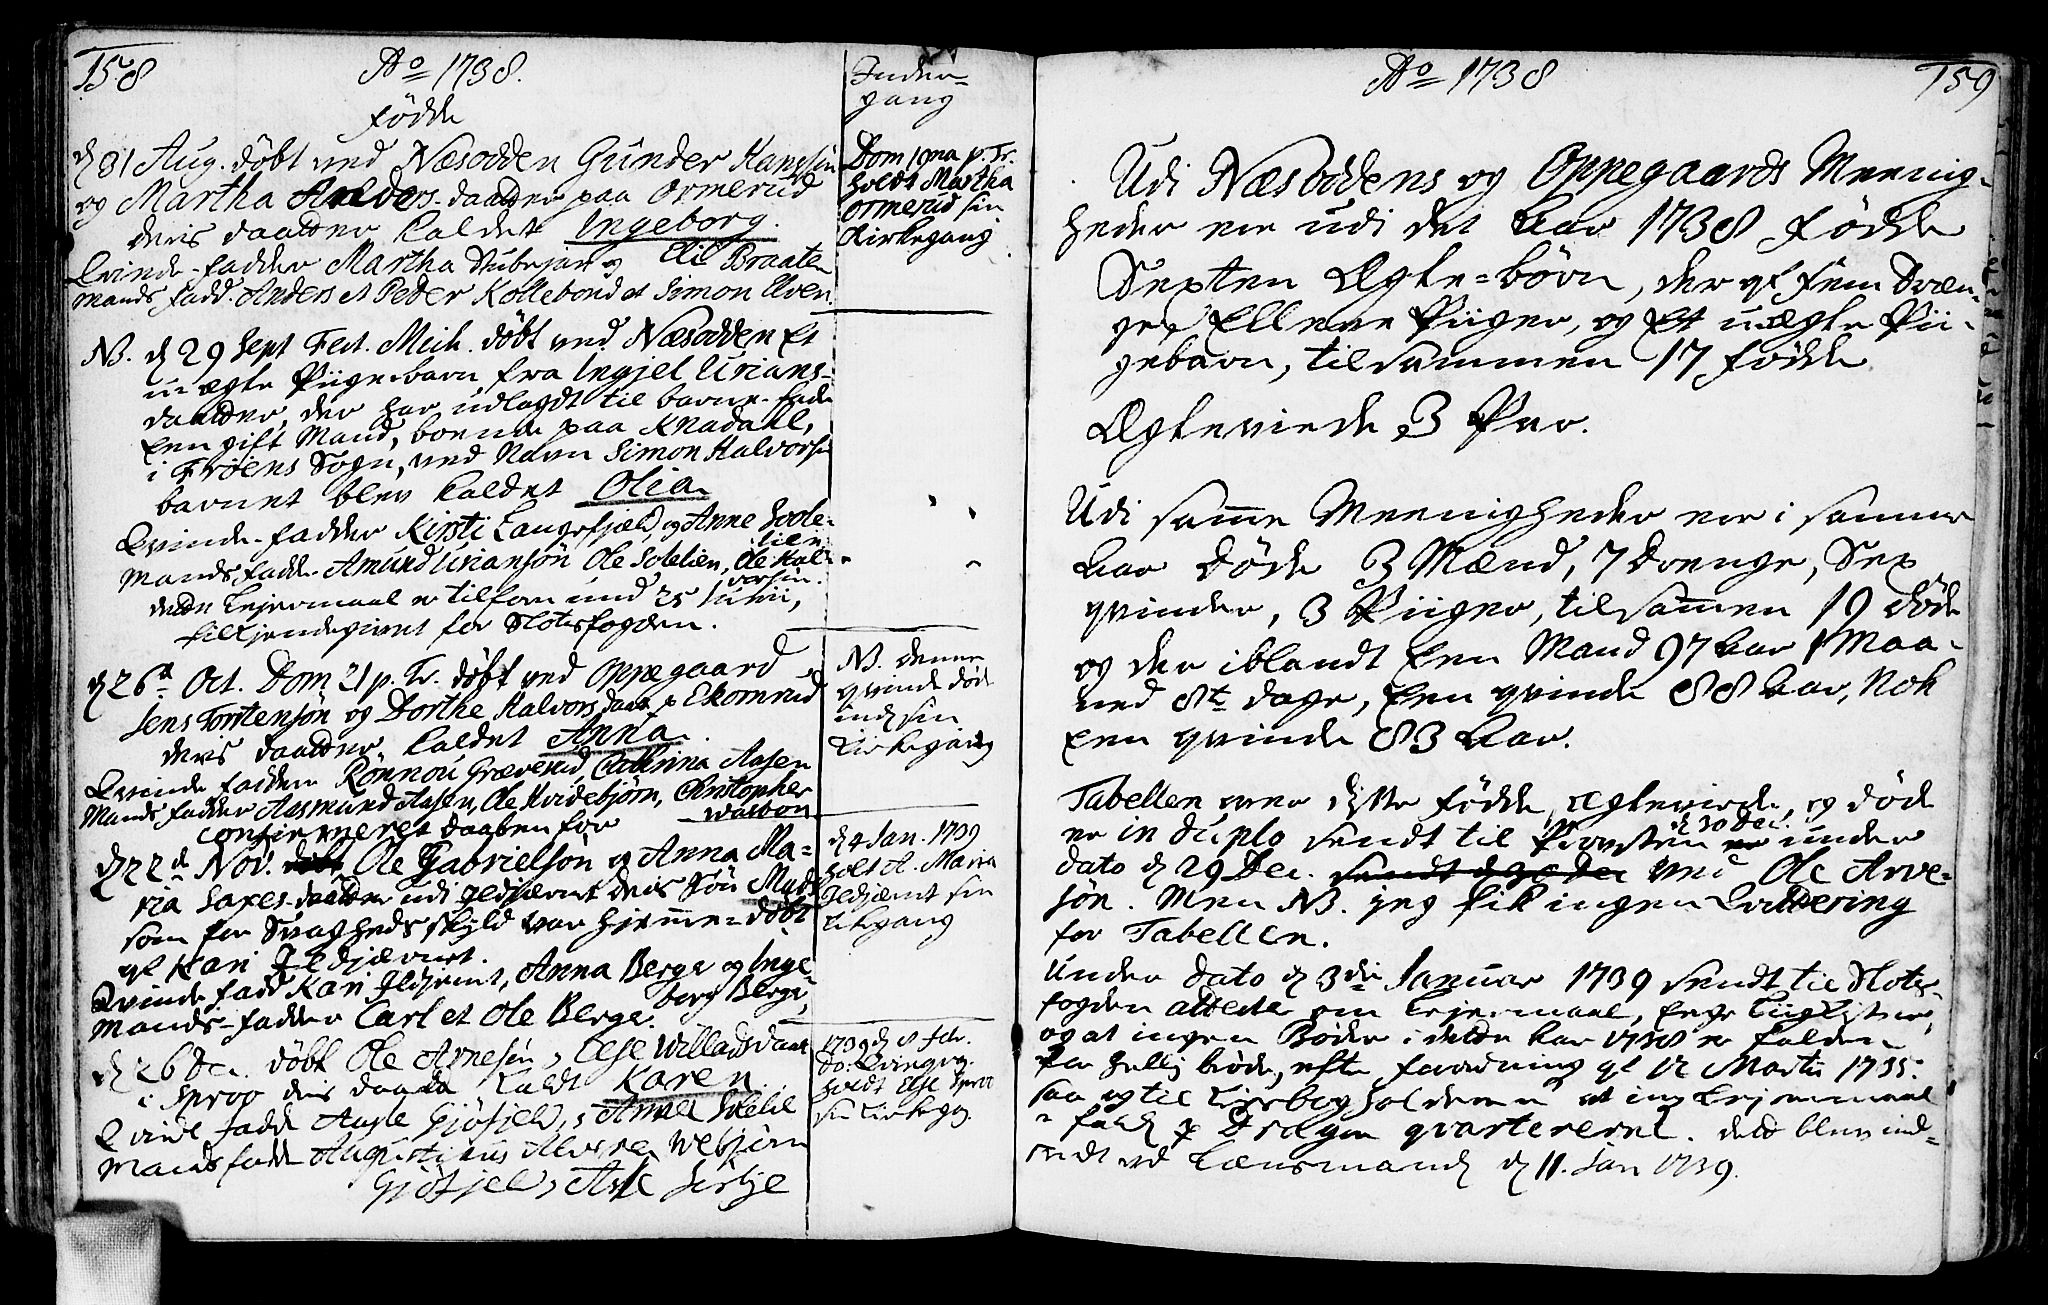 158
Ao 1738.
Fødde
d 31 Aug. døbt ved Næsodden Gunder Hanssøn
og Martha Anders-daatter paa Ormerud
deris daatter kaldet Ingeborg.
Qvinde-fadder Martha og Eli Braaten
Mands fadd. Anders et Peder Kollebond et Simon Elven
NB. d 29 Sept Fest. Mich. døbt ved Næsodden Et
u-ægte Piigebarn fra Ingjel Urians-
daatter, der har udlagdt til barne-fader
Een gift Mand, boende paa Knadahl,
i Frøens Sogn, ved Navn Simon Halvorssøn
barnet blev kaldet Olea
Qvinde-fadder Kirsti Langefjæld, og Anne Soele-
lien
Mands fadder Amund Uriansøn Ole Solelien, Ole Hal-
versøn.
dette Lejermaal er tilforn und 25 Junii,
tilkjendegivet for Slotsfogden.
d 26d Oct. Dom 21 p. Tr. døbt ved Oppegaard
Jens Torstensøn og Dorthe Halvorsdaat. p Ekornrud
deris daatter kaldet Anna.
Qvinde fadder Rønnou Græverud, Cathrina Aasen
Mands fadder Aasmund Aasen, Ole Hvidebjørn, Christopher
confirmeret daaben for
d 22d Nov. døbt Ole Gabrielsøn og Anna Ma-
ria Saxes-daatter udi Jldjærnet deris Søn Mads
som for Svagheds skyld var hjemme-døbt
af Kari Jldjærnet.
Qvinde fadd Kari Jldjernt, Anna Berge og Inge-
borg Berge,
Mands-fadder Carl et Ole Berge.
d 26 Dec. døbt Ole Arnesøn, Else Willadsdaat
i Sproo deris daatter kaldt Karen
Qvind fadd Aasle Gjøfjeld, Anne
Mands fadde Augustinus Alvern Webjørn
Gjøfjeld,
Inder-
gang
Dom 19na p. Tr.
holdt Martha
Ormerud sin
Kirkegang
NB. denne
qvinde døde
ind sin
Kirkegang
d 4 Jan. 1739
holt A. Maria
Jldjærnt sin
Kirkgang
1739 d 8 Febr.
holdt Else Sproo
sin Kirkegg
Ao 1738
159
Udi Næsoddens og Oppegaards Meenig-
heder ere udi det Aar 1738 fødde
Sexten Ægte-børn, der af fem Dræn-
ge, Elleve Piiger, og Et uægte Pii-
gebarn, tilsammen 17 fødde
Ægteviede 3 Par.
Udi samme Meenigheder ere i samme
Aar døde 3 Mænd, 7 drenge, Sex
qvinder, 3 Piiger, tilsammen 19 døde
og der iblandt Een Mand 97 Aar 1 Maa-
ned 8te dage, Een qvinde 88 Aar, Nok
Een qvinde 83 Aar.
Tabellen over disse fødde, ægteviede, og døde
er in duplo sendt til Provsten d 30 Dec. under
dato d 29 Dec. ved Ole Arve-
søn. Men NB. jeg fik ingen Qvittering
for Tabellen.
Under dato d 3die Januar 1739 sendt til Slots-
fogden attester om Lejermaal,
og at ingen Bøder i dette Aar 1738 er falden
for helligbrøde, efter forordning af 12 Martii 1735.
saa og til at ing Lejermaal
er faldt p Dragon qvarterernt. dette blev ind-
sendt ved Lænsmand d 11. Jan 1739.